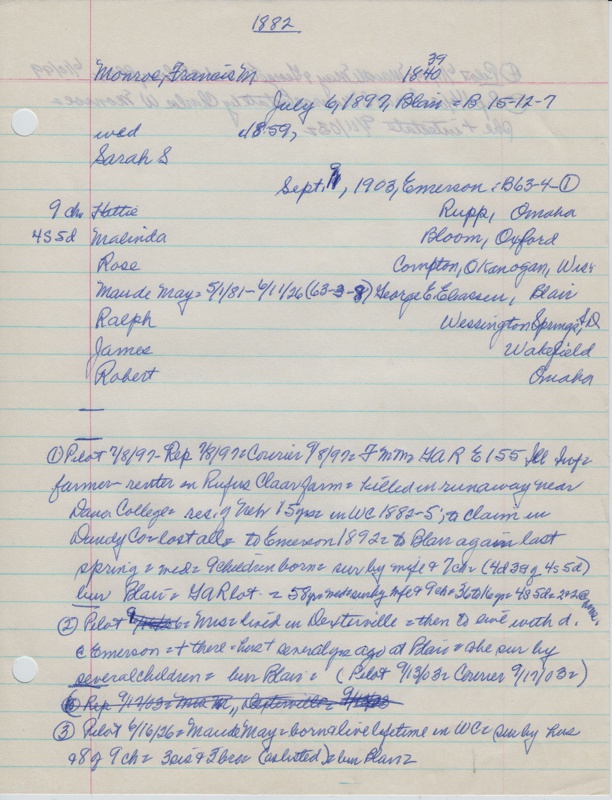 1882
Monroe, Francis M 39 1840
July 6, 1897, Blair = B 15-12-7
wed 1859,
Sarah S
Sept. 9, 1903, Emerson = B63-4-①
9 ch Hattie Rupp, Omaha
4s 5d Malinda Bloom, Oxford
Rose Compton, Okanogan, Wash
Maude May = 5/1/81-6/11/26 (63-3-8) George E Eliassen, Blair
Ralph Wessington Springs, S.D.
James Wakefield
Robert Omaha
① Pilot 7/8/97 - Rep 7/8/97 = Courier 7/8/97 = F M M = GAR E 155 Ill Inf =
farmer - renter on Rufus Claar farm = killed in runaway near
Dana College = res. of Nebr 15 yrs = in WC 1882-5; to claim in
Dundy Co = lost all = to Emerson 1892 = to Blair again last
spring = wed = 9 children born = sur by wife & 7 ch = (4d 3s of 4s 5d)
bur Blair = GAR lot = 58 yrs = wed = sur by wife & 9 ch = 36 to 16 yrs = 4s 5d =
② Pilot = Mrs = lived in Dexterville = then to live with d.
@ Emerson = + there = hus + several yrs ago at Blair = she sur by
several children = bur Blair = (Pilot 9/13/03 = Courier 9/17/03 =)
③ Pilot 6/16/26 = Maude May = born & live lifetime in WC = sur by hus
& 8 of 9 ch = 3 sis & 3 bro = (as listed) = bur Blair =